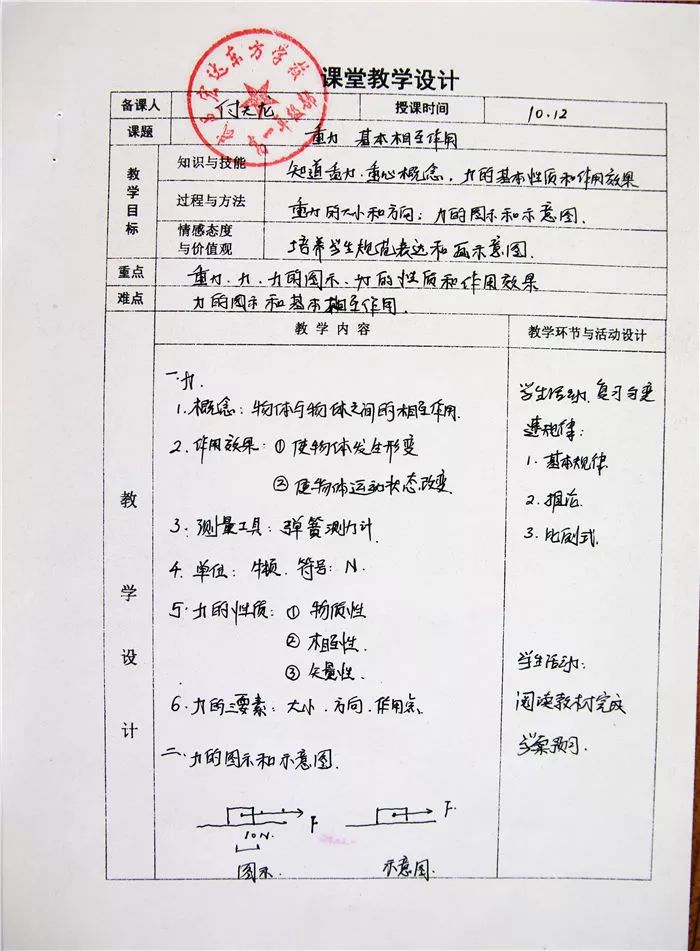 课堂教学设计
备课人 付天龙 授课时间 10.12
课题 重力 基本相互作用
教学目标
知识与技能 知道重力、重心概念,力的基本性质和作用效果
过程与方法 重力的大小和方向;力的图示和示意图.
情感态度与价值观 培养学生规范表达和画示意图.
重点 重力、力、力的图示、力的性质和作用效果
难点 力的图示和基本相互作用.
教学内容 教学环节与活动设计
教学设计
一.力.
1.概念:物体与物体之间的相互作用.
2.作用效果:①使物体发生形变
②使物体运动状态改变
3.测量工具:弹簧测力计.
4.单位:牛顿.符号:N.
5.力的性质:①物质性
②相互性.
③矢量性.
6.力的三要素:大小.方向.作用点.
二.力的图示和示意图.
F
10N.
图示.
F.
示意图.
学生活动.复习匀变
速规律:
1.基本规律
2.推论
3.比例式.
学生活动:
阅读教材完成
学案预习.
东方学校
高一年级部